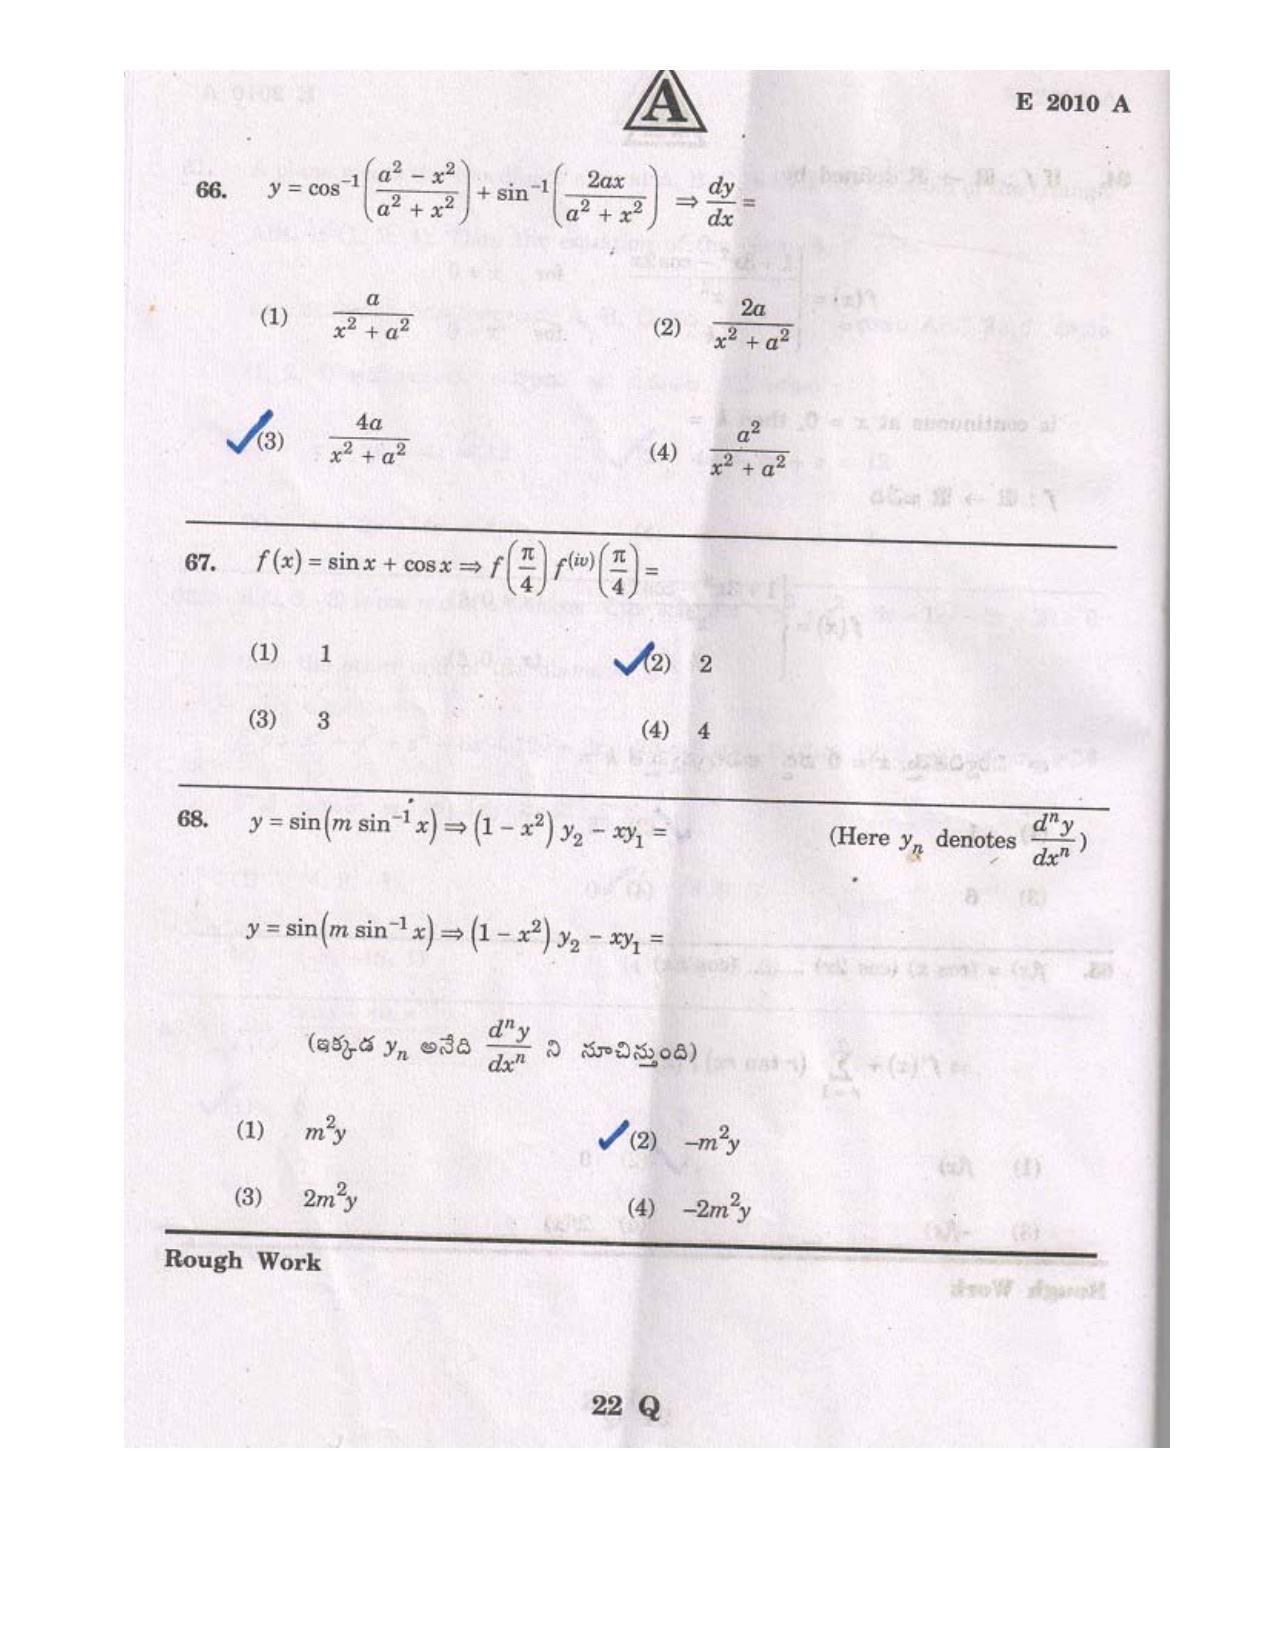 A
E 2010 A
66. y = cos⁻¹((a² − x²)/(a² + x²)) + sin⁻¹(2ax/(a² + x²)) ⇒ dy/dx =
(1) a/(x² + a²) (2) 2a/(x² + a²)
(3) 4a/(x² + a²) (4) a²/(x² + a²)
67. f(x) = sin x + cos x ⇒ f(π/4) f⁽ⁱᵛ⁾(π/4) =
(1) 1 (2) 2
(3) 3 (4) 4
68. y = sin(m sin⁻¹ x) ⇒ (1 − x²) y₂ − xy₁ = (Here yₙ denotes dⁿy/dxⁿ)
y = sin(m sin⁻¹ x) ⇒ (1 − x²) y₂ − xy₁ =
(ఇక్కడ yₙ అనేది dⁿy/dxⁿ ని సూచిస్తుంది)
(1) m²y (2) −m²y
(3) 2m²y (4) −2m²y
Rough Work
22 Q